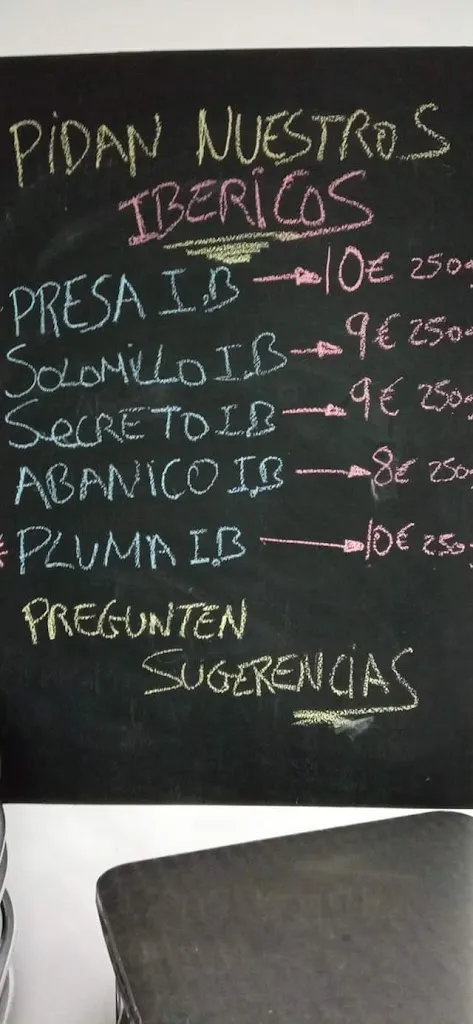 PIDAN NUESTROS
IBERICOS
PRESA I.B → 10€ 250
SOLOMILLO I.B → 9€ 250
SECRETO I.B → 9€ 250
ABANICO I.B → 8€ 250
* PLUMA I.B → 10€ 250
PREGUNTEN
SUGERENCIAS